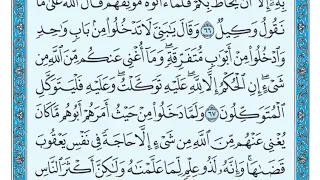 بِهِۦٓ إِلَّآ أَن يُحَاطَ بِكُمْ فَلَمَّآ ءَاتَوْهُ مَوْثِقَهُمْ قَالَ ٱللَّهُ عَلَىٰ مَا
نَقُولُ وَكِيلٌ ٦٦ وَقَالَ يَٰبَنِىَّ لَا تَدْخُلُوا۟ مِنۢ بَابٍ وَٰحِدٍ
وَٱدْخُلُوا۟ مِنْ أَبْوَٰبٍ مُّتَفَرِّقَةٍ وَمَآ أُغْنِى عَنكُم مِّنَ ٱللَّهِ مِن
شَىْءٍ إِنِ ٱلْحُكْمُ إِلَّا لِلَّهِ عَلَيْهِ تَوَكَّلْتُ وَعَلَيْهِ فَلْيَتَوَكَّلِ
ٱلْمُتَوَكِّلُونَ ٦٧ وَلَمَّا دَخَلُوا۟ مِنْ حَيْثُ أَمَرَهُمْ أَبُوهُم مَّا كَانَ
يُغْنِى عَنْهُم مِّنَ ٱللَّهِ مِن شَىْءٍ إِلَّا حَاجَةً فِى نَفْسِ يَعْقُوبَ
قَضَىٰهَا وَإِنَّهُۥ لَذُو عِلْمٍ لِّمَا عَلَّمْنَٰهُ وَلَٰكِنَّ أَكْثَرَ ٱلنَّاسِ